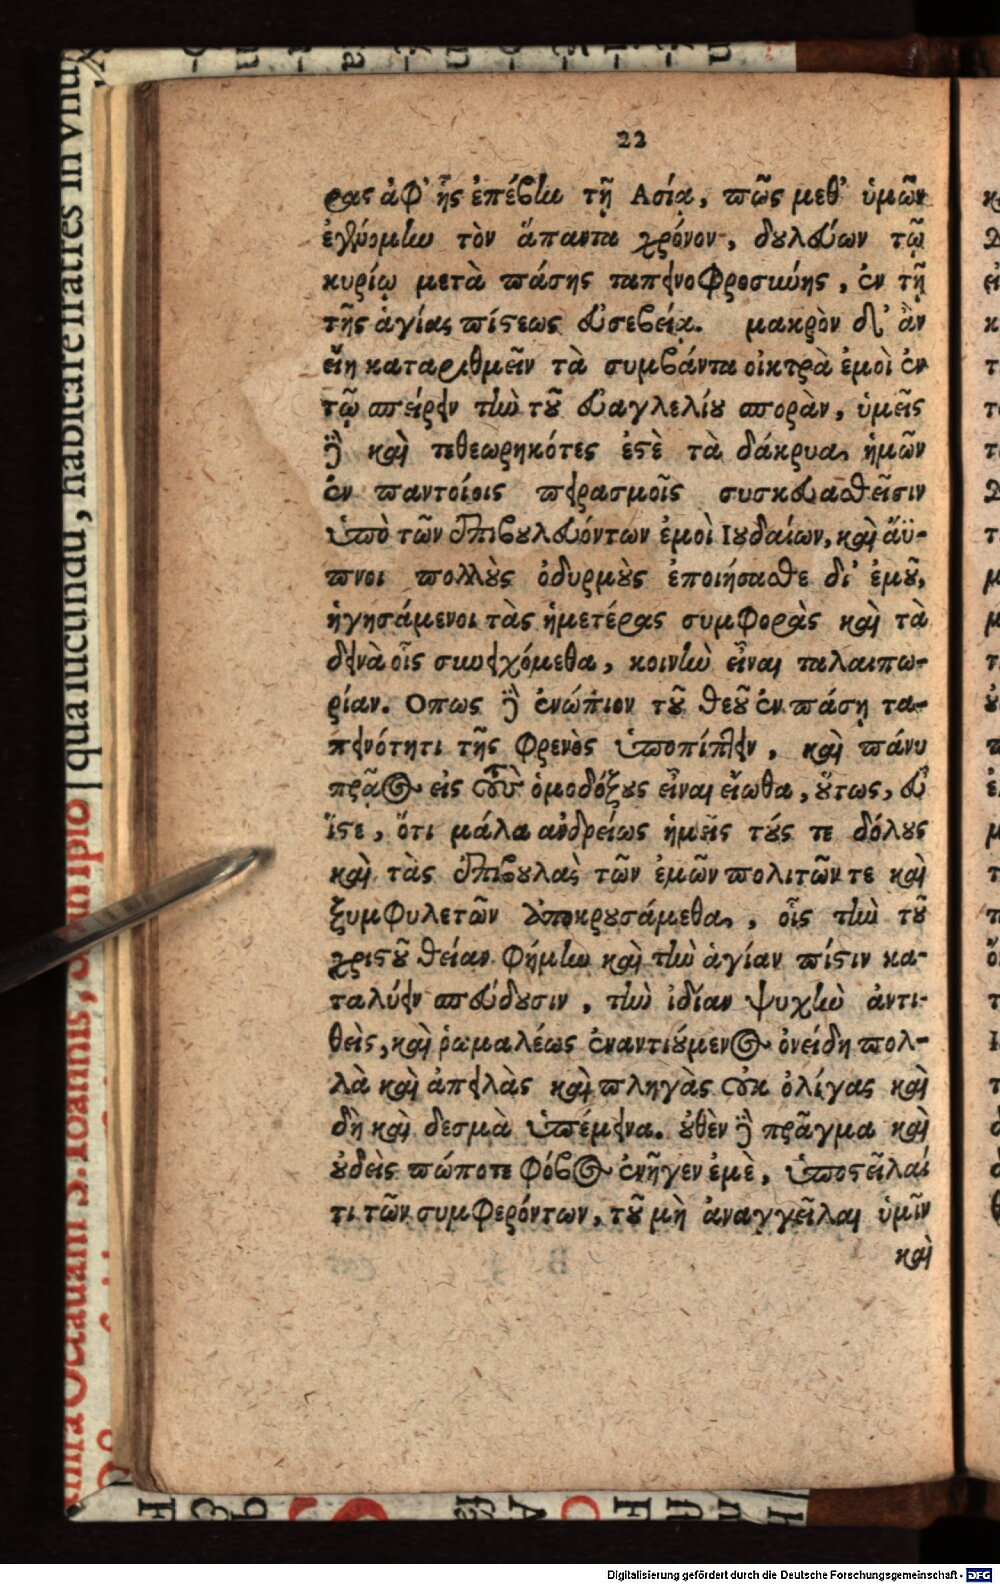 22
ρας ἀφ' ἧς ἐπέβην τῇ Ασίᾳ, πῶς μεθ' ὑμῶν
ἐγενόμην τὸν ἅπαντα χρόνον, δουλεύων τῷ
κυρίῳ μετὰ πάσης ταπεινοφροσύνης, ἐν τῇ
τῆς ἁγίας πίστεως εὐσεβείᾳ. μακρὸν δ' ἂν
εἴη καταριθμεῖν τὰ συμβάντα οἰκτρὰ ἐμοὶ ἐν
τῷ σπείρειν τὴν τοῦ εὐαγγελίου σπορὰν, ὑμεῖς
δὲ καὶ τεθεωρηκότες ἐστὲ τὰ δάκρυα ἡμῶν
ἐν παντοίοις πειρασμοῖς συσκευασθεῖσιν
ὑπὸ τῶν ἐπιβουλευόντων ἐμοὶ Ιουδαίων, καὶ ἄϋ-
πνοι πολλοὺς ὀδυρμοὺς ἐποιήσασθε δι' ἐμοῦ,
ἡγησάμενοι τὰς ἡμετέρας συμφορὰς καὶ τὰ
δεινὰ οἷς συνειχόμεθα, κοινὴν εἶναι ταλαιπω-
ρίαν. Οπως δὲ ἐνώπιον τοῦ θεοῦ ἐν πάσῃ τα-
πεινότητι τῆς φρενὸς ὑποπίπτειν, καὶ πάνυ
πρᾷος εἰς τοὺς ὁμοδόξους εἶναι εἴωθα, οὕτως, εὖ
ἴστε, ὅτι μάλα ανδρείως ἡμεῖς τούς τε δόλους
καὶ τὰς ἐπιβουλὰς τῶν ἐμῶν πολιτῶν τε καὶ
ξυμφυλετῶν ἀπεκρουσάμεθα, οἷς τὴν τοῦ
χριστοῦ θείαν φήμην καὶ τὴν ἁγίαν πίστιν κα-
ταλύειν σπεύδουσιν, τὴν ἰδίαν ψυχὴν ἀντι-
θεὶς, καὶ ῥωμαλέως ἐναντιούμενος ὀνείδη πολ-
λὰ καὶ ἀπειλὰς καὶ πληγὰς οὐκ ὀλίγας καὶ
δὴ καὶ δεσμὰ ὑπέμεινα. οὐθὲν δὲ πρᾶγμα καὶ
οὐδεὶς πώποτε φόβος ἐνῆγεν ἐμὲ, ὑποστεῖλαί
τι τῶν συμφερόντων, τοῦ μὴ ἀναγγεῖλαι ὑμῖν
καὶ
qua iucundu, habitare fratres in vnu
S. Ioannis,
Digitalisierung gefördert durch die Deutsche Forschungsgemeinschaft - DFG